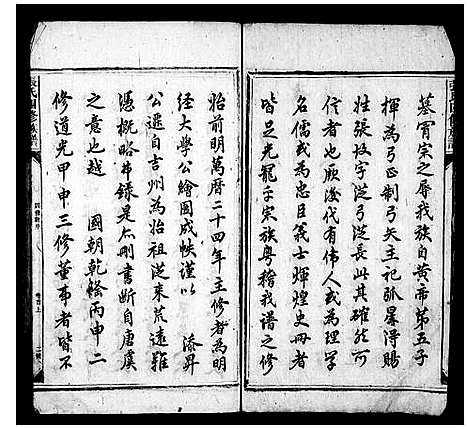 墓胥宗之辱我族自黄帝第五子
揮為弓正制弓矢主祀弧星得賜
姓張故字從弓從長此其確然可
信者也厥後代有偉人或為理學
名儒或為忠臣義士輝煌史冊者
皆足光寵乎宗族粤稽我譜之修
始前明萬曆二十四年主修者為明
經大學公繪圖成帙謹以 添昇
公遷自吉州為始祖從來荒遠難
憑概略弗錄是亦刪書斷自唐虞
之意也越 國朝乾隆丙申二
修道光甲申三修董事者皆不
張氏四修族譜
四修新序
卷首上